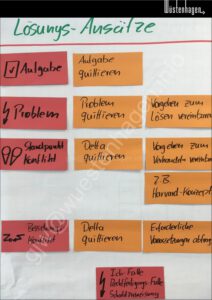 Wüstenhagen
Lösungs-Ansätze
Aufgabe
Aufgabe
quittieren
Problem
Problem
quittieren
Vorgehen zum
Lösen vereinbaren
Standpunkt
Konflikt
Delta
quittieren
Vorgehen zum
Verhandeln vereinbaren
z.B.
Harvard-Konzept
Konflikt
Delta
quittieren
Erforderliche
Voraussetzungen
Ich Falle
Rechtfertigungs Falle
Schuldzuweisung